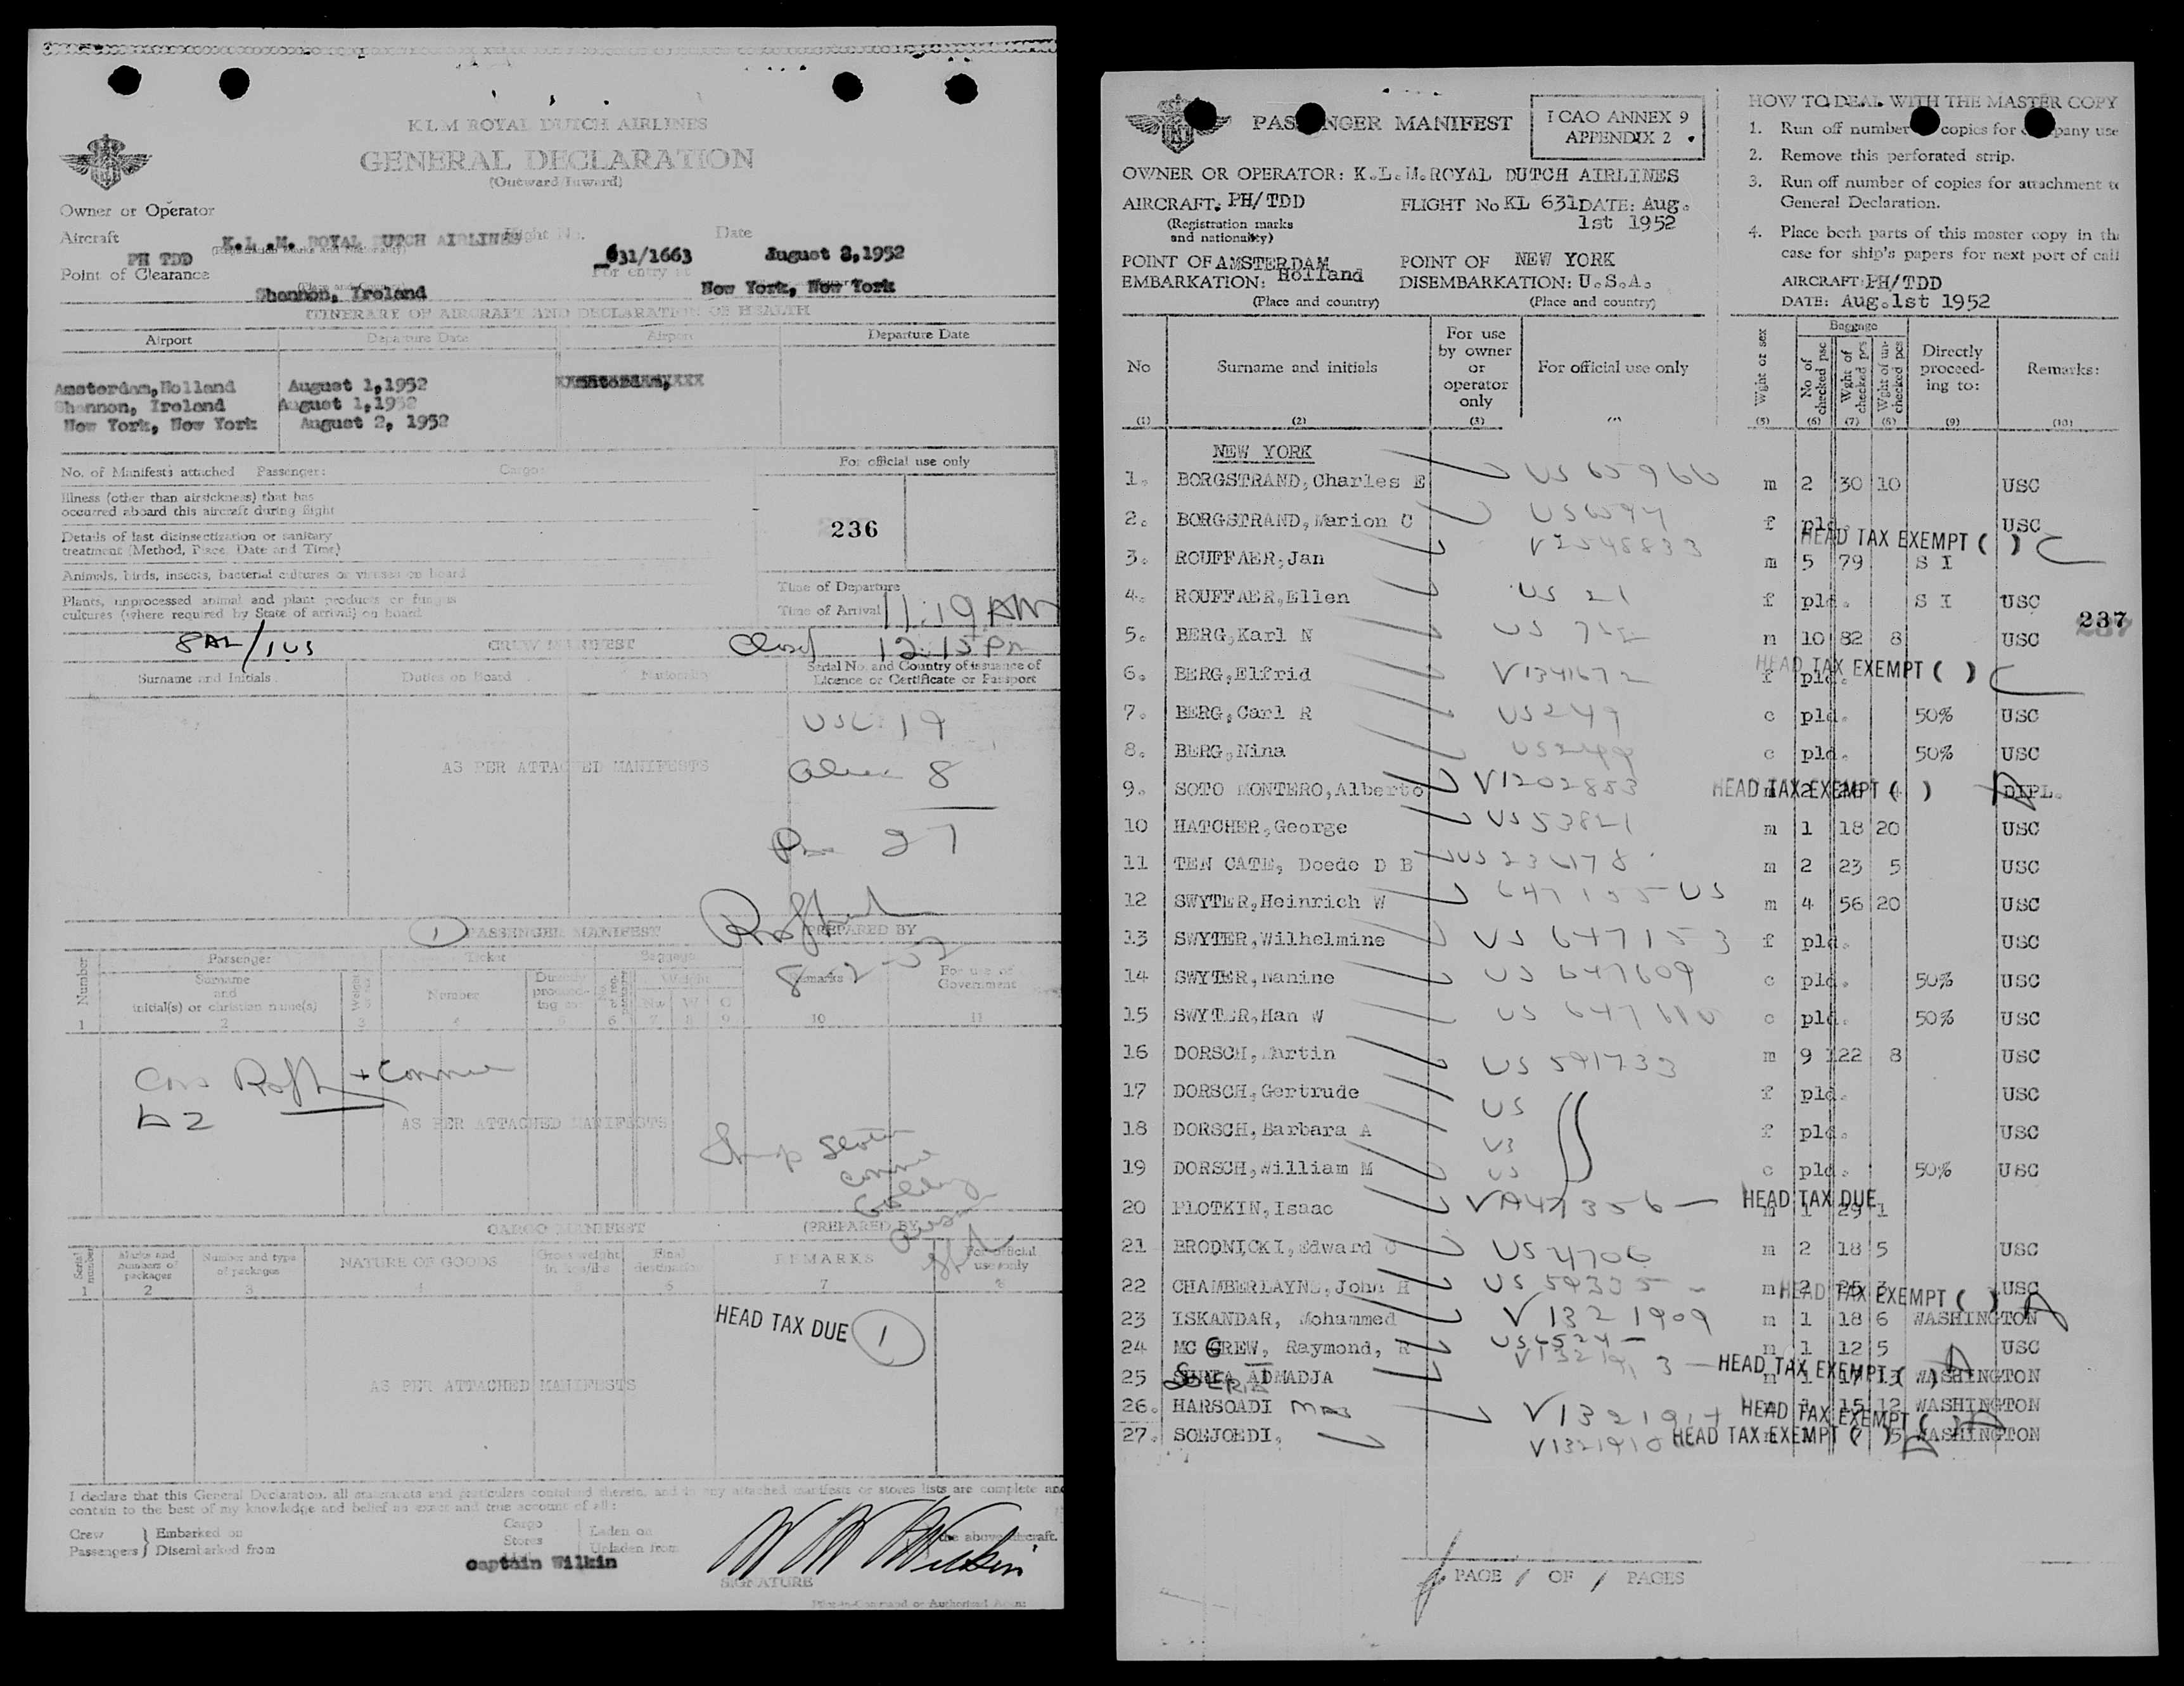 KLM ROYAL DUTCH AIRLINES
GENERAL DECLARATION
(Outward/Inward)
Owner or Operator
Aircraft K.L.M. ROYAL DUTCH AIRLINES Flight No. Date
PH TDD (Registration Marks and Nationality) 631/1663 August 2,1952
Point of Clearance For entry at
Shannon, Ireland New York, New York
ITINERARY OF AIRCRAFT AND DECLARATION OF HEALTH
Airport Departure Date Airport Departure Date
Amsterdam,Holland August 1,1952
Shannon, Ireland August 1,1952
New York, New York August 2, 1952
No. of Manifests attached Passenger: Cargo: For official use only
Illness (other than airsickness) that has
occurred aboard this aircraft during flight
236
Details of last disinsectization or sanitary
treatment (Method, Place, Date and Time)
Animals, birds, insects, bacterial cultures or viruses on board
Plants, unprocessed animal and plant products or fungus
cultures (where required by State of arrival) on board
Time of Departure
Time of Arrival 11:19 AM
8 AL/1 US CREW MANIFEST Closed 12:15 Pm
Surname and Initials Duties on Board Nationality Serial No. and Country of issuance of
Licence or Certificate or Passport
USC 19
Alien 8
AS PER ATTACHED MANIFESTS
27
1 PASSENGER MANIFEST PREPARED BY
8-2-52
Number Passenger Ticket Baggage Remarks For use of
Government
Surname
and
initial(s) or christian name(s)
Weight Number Directly
proceed-
ing to Weight
Nw W C
1 2 3 4 5 6 7 8 9 10 11
AS PER ATTACHED MANIFESTS
CARGO MANIFEST (PREPARED BY
Serial
number Marks and
numbers of
packages Number and type
of packages NATURE OF GOODS Gross weight
in kos/lbs Final
destination REMARKS For official
use only
1 2 3 4 5 6 7 8
HEAD TAX DUE 1
AS PER ATTACHED MANIFESTS
I declare that this General Declaration, all statements and particulars contained therein, and in any attached manifests or stores lists are complete and
contain to the best of my knowledge and belief an exact and true account of all:
Crew
Passengers
Embarked on
Disembarked from
Cargo
Stores
Laden on
Unladen from
the above aircraft.
captain Wilkin
SIGNATURE
Pilot-in-Command or Authorized Agent
PASSENGER MANIFEST
I CAO ANNEX 9
APPENDIX 2
OWNER OR OPERATOR: K.L.M.ROYAL DUTCH AIRLINES
AIRCRAFT: PH/TDD FLIGHT No KL 631 DATE: Aug.
1st 1952
(Registration marks
and nationality)
POINT OF AMSTERDAM POINT OF NEW YORK
EMBARKATION: Holland DISEMBARKATION: U.S.A.
(Place and country) (Place and country)
HOW TO DEAL WITH THE MASTER COPY
1. Run off number copies for company use
2. Remove this perforated strip.
3. Run off number of copies for attachment to
General Declaration.
4. Place both parts of this master copy in the
case for ship's papers for next port of call
AIRCRAFT: PH/TDD
DATE: Aug.1st 1952
No Surname and initials For use
by owner
or
operator
only For official use only Wght or sex Baggage
No of
checked psc Wght of
checked pcs Wght of un-
checked pcs Directly
proceed-
ing to: Remarks:
(1) (2) (3) (5) (6) (7) (8) (9) (10)
NEW YORK
1. BORGSTRAND,Charles E US 65966 m 2 30 10 USC
2. BORGSTRAND,Marion C f pld. USC
HEAD TAX EXEMPT ( )
3. ROUFFAER,Jan V2548833 m 5 79 S I
4. ROUFFAER,Ellen US 21 f pld. S I USC
237
5. BERG,Karl N m 10 82 8 USC
HEAD TAX EXEMPT ( )
6. BERG,Elfrid V1341672 f pld.
7. BERG,Carl R US249 c pld. 50% USC
8. BERG,Nina c pld. 50% USC
9. SOTO MONTERO,Alberto V1202853 HEAD TAX EXEMPT ( ) DIPL.
10 HATCHER,George US53821 m 1 18 20 USC
11 TEN CATE, Doedo D B US236178 m 2 23 5 USC
12 SWYTER,Heinrich W 647155 US m 4 56 20 USC
13 SWYTER,Wilhelmine US 647153 f pld. USC
14 SWYTER,Nanine US 647609 c pld. 50% USC
15 SWYTER,Han W c pld. 50% USC
16 DORSCH,Martin US 591733 m 9 122 8 USC
17 DORSCH,Gertrude US f pld. USC
18 DORSCH,Barbara A US f pld. USC
19 DORSCH,William M US c pld. 50% USC
20 PLOTKIN,Isaac HEAD TAX DUE m 1 29 1
21 BRODNICKI,Edward C US 4706 m 2 18 5 USC
22 CHAMBERLAYNE,John H US 59335 m 2 25 3 USC
HEAD TAX EXEMPT ( )
23 ISKANDAR, Mohammed V 1321909 m 1 18 6 WASHINGTON
24 MC GREW, Raymond, R US6524 m 1 12 5 USC
HEAD TAX EXEMPT ( )
25 ADMADJA m 1 17 13 WASHINGTON
26. HARSOADI MAS HEAD TAX EXEMPT ( ) 15 12 WASHINGTON
27. SOEJOEDI, V1321910 HEAD TAX EXEMPT ( ) WASHINGTON
PAGE 1 OF 1 PAGES